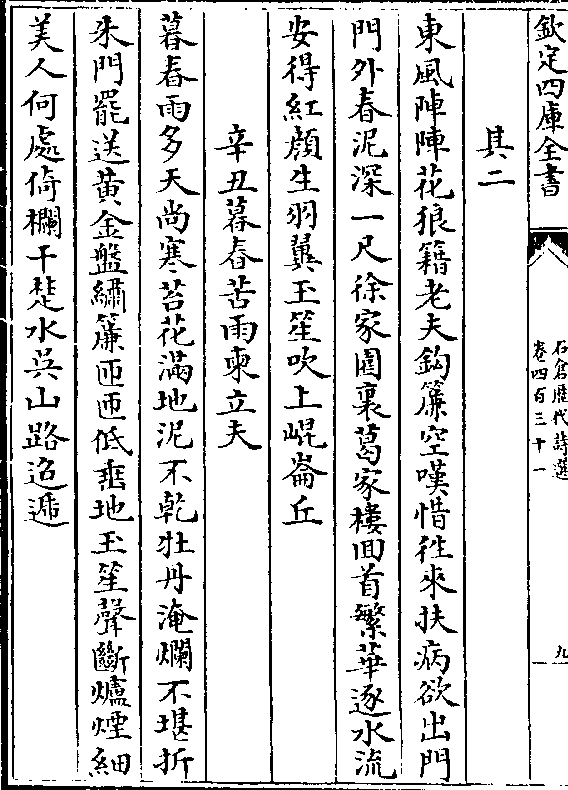 欽定四庫全書
石倉歷代詩選
卷四百三十一
九
其二
東風陣陣花狼籍老夫鈎簾空嘆惜徃來扶病欲出門
門外春泥深一尺徐家園裏葛家樓囬首繁華逐水流
安得紅顔生羽翼玉笙吹上崐崙丘
辛丑暮春苦雨柬立夫
暮春雨多天尚寒苔花滿地泥不乾牡丹淹爛不堪折
朱門罷送黃金盤繡簾匝匝低垂地玉笙聲斷爐煙細
美人何處倚欄干楚水吳山路迢遞